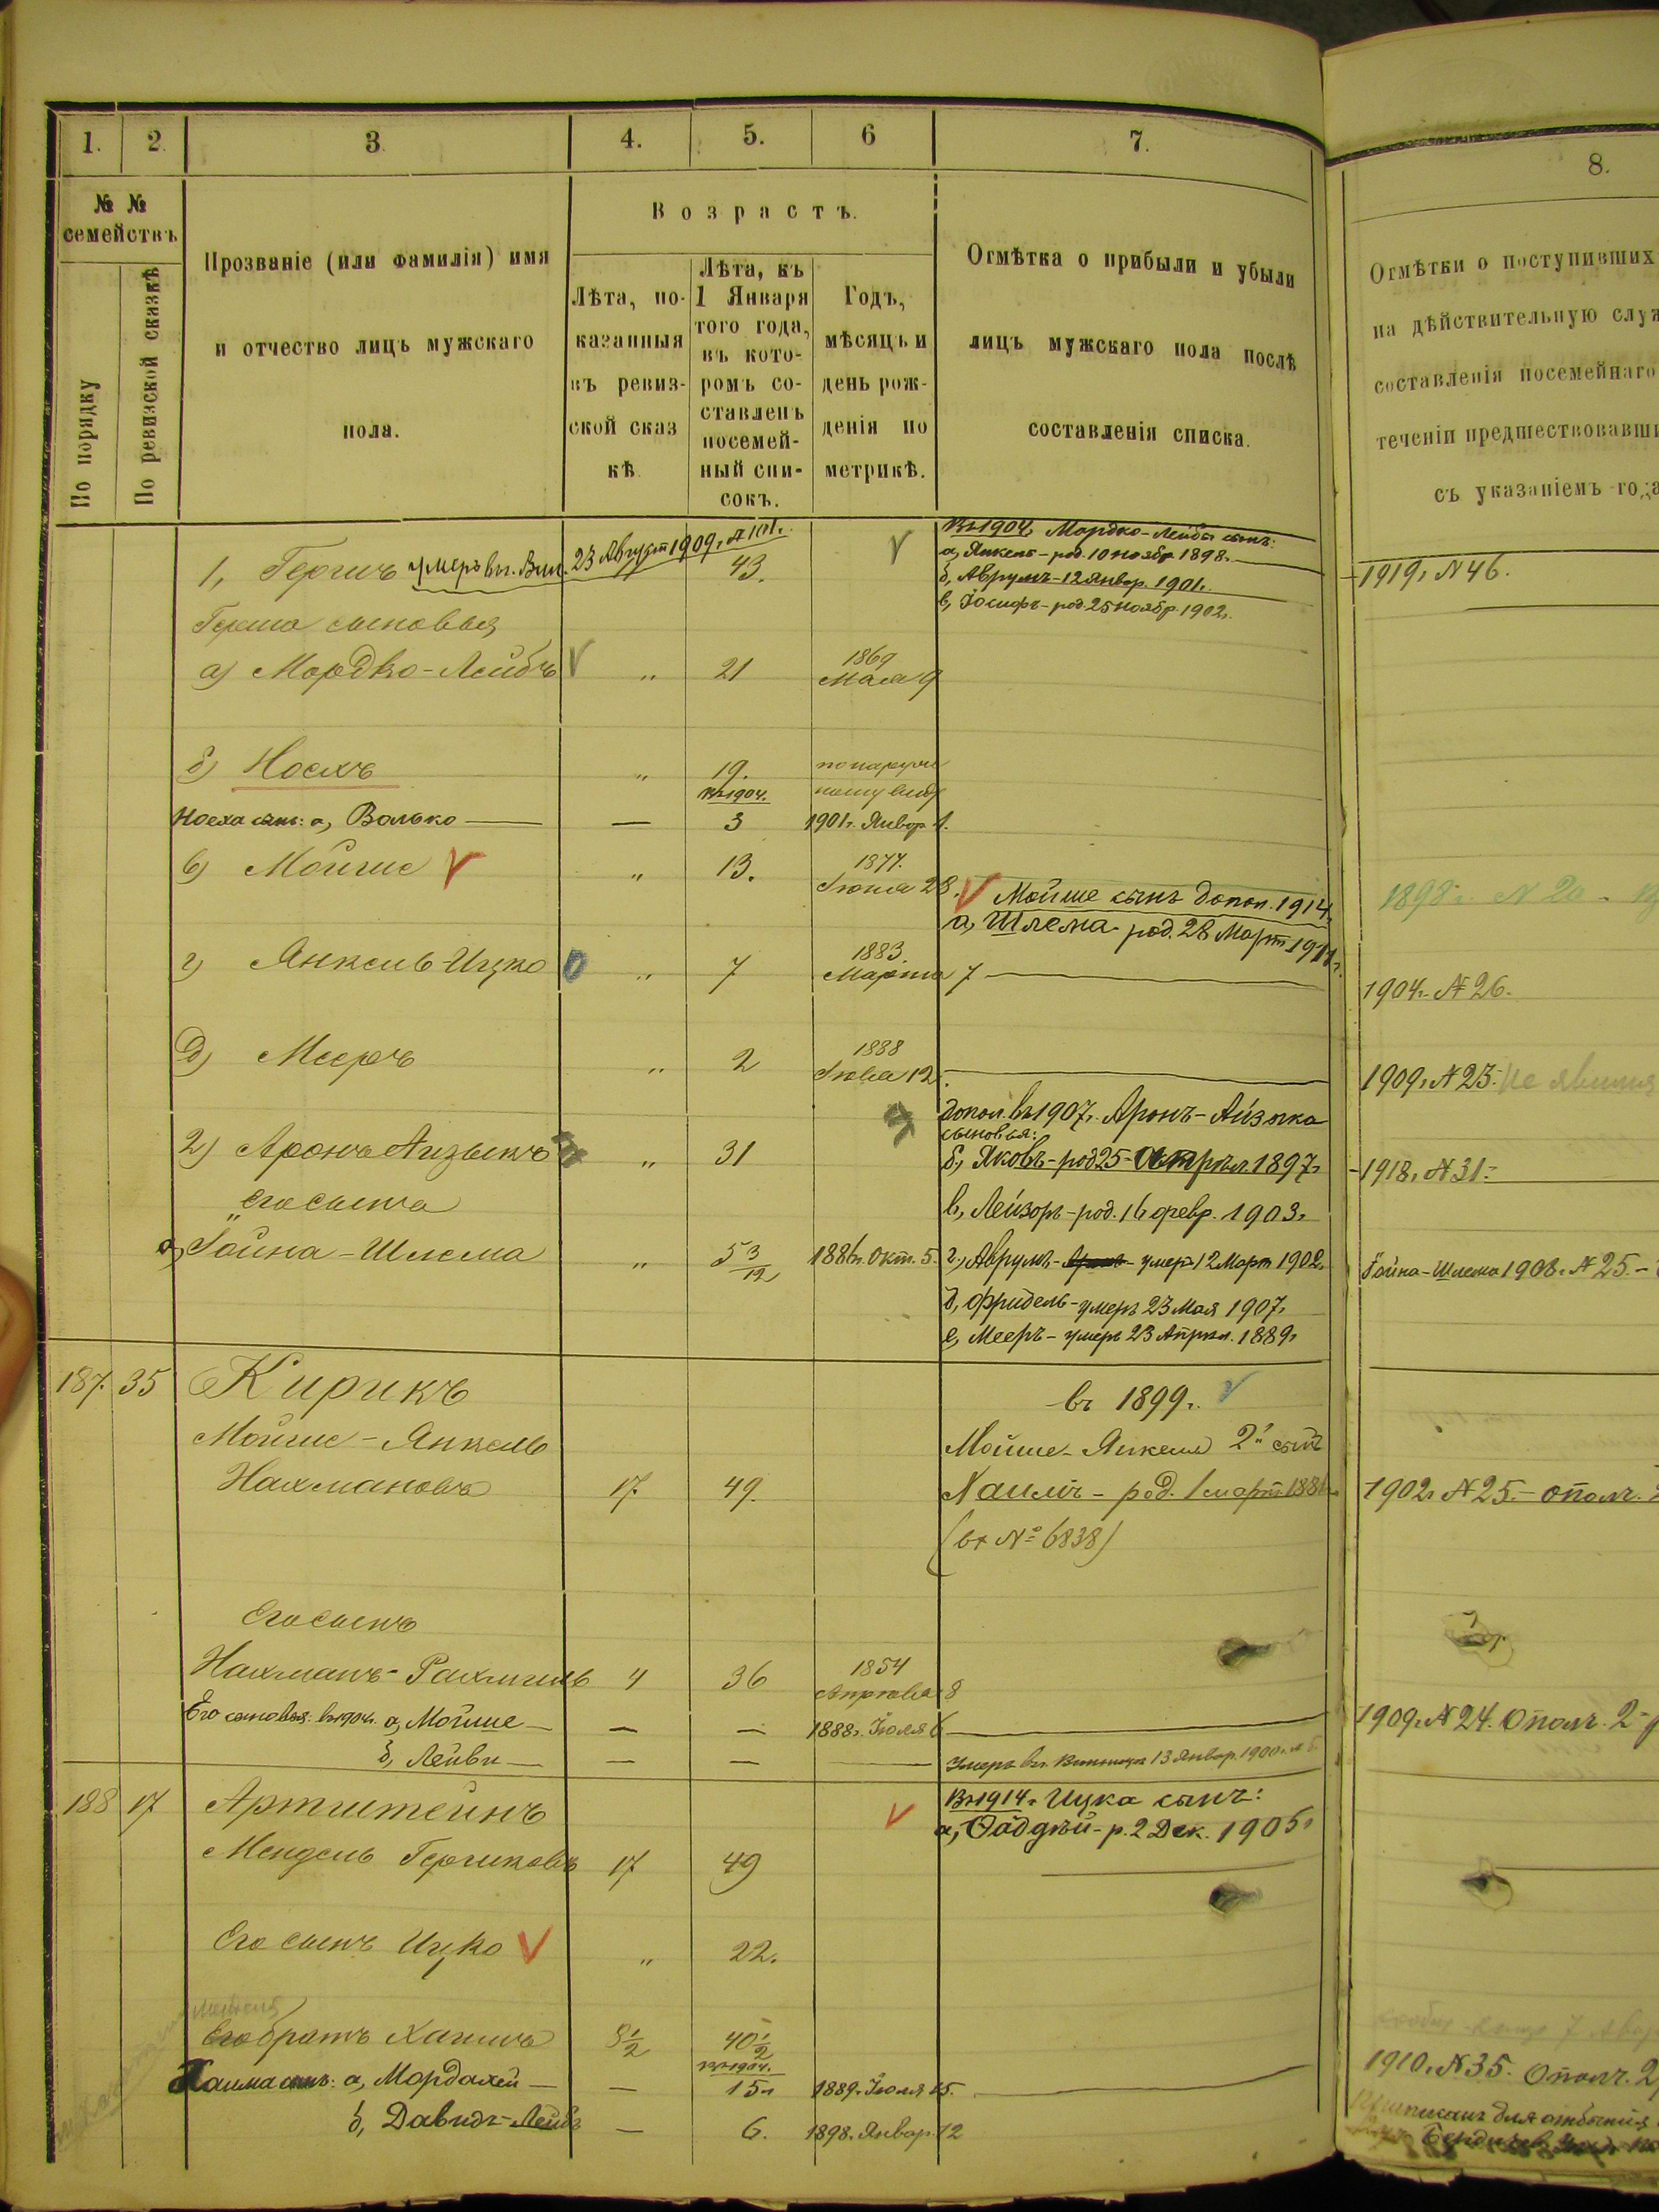 1. 2. 3. 4. 5. 6 7.
№ № семействъ
По порядку
По ревизской сказкѣ
Прозваніе (или фамилія) имя
и отчество лицъ мужскаго
пола.
Возрастъ.
Лѣта, по-
казанныя
въ ревиз-
ской сказ
кѣ.
Лѣта, къ
1 Января
того года,
въ кото-
ромъ со-
ставленъ
посемей-
ный спи-
сокъ.
Годъ,
мѣсяцъ и
день рож-
денія по
метрикѣ.
Отмѣтка о прибыли и убыли
лицъ мужскаго пола послѣ
составленія списка.
1, Гершъ умеръ въ г. Вин. 23 Август 1909 г. 43.
Въ 1904 г. Мордко-Лейбы сынъ:
а, Янкель - род. 10 ноябр 1898 г.
б, Аврумъ - 12 Январ. 1901 г.
в, Іосифъ - род. 25 ноябр. 1902 г.
Герша сыновья
а) Мордко-Лейбъ „ 21 1869 Мая 9
б) Носхъ „ 19.
въ 1904.
Носха сынъ: а, Волько — — 3 1901 г. Январ 1.
в) Мойше „ 13. 1877. Іюня 28.
Мойше сынъ допол. 1914
а, Шлема - род. 28 Март 1911 г.
г) Янкель-Ицко „ 7 1883. Марта 7
д) Мееръ „ 2 1888 Іюня 12.
2) Аронъ Айзыкъ „ 31
допол. въ 1907 г. Аронъ-Айзыка
сыновья:
б, Яковъ - род 25 1897 г.
его сына
в, Лейзоръ - род. 16 февр. 1903 г.
а, Гойна-Шлема „ 5 3/12 1886 г. Окт. 5.
г, Аврумъ - умеръ 12 Март 1902 г.
д, Фридель - умеръ 23 Мая 1907 г.
е, Мееръ - умеръ 23 Апрѣл. 1889 г.
187. 35 Кирикъ
въ 1899 г.
Мойше-Янкель
Мойше-Янкеля 2й сынъ
Нахмановъ 17. 49.
Хаимъ - род. 1 март 1881
(вх № 6838)
Его сынъ
Нахманъ-Рахмиль 4 36 1854 Апрѣля 8
Его сыновья: въ 1904 г. а, Мойше — — — 1888 г. Іюля 6
б, Лейви — — — Умеръ въ г. Винница 13 Январ. 1900 г.
188 17 Артштейнъ
Въ 1914 г. Ицка сынъ:
а, Фадѣй - р. 2 Дек. 1905 г.
Мендель Гершковъ 17 49
Его сынъ Ицко „ 22.
Менделя
Его братъ Хаимъ 8½ 40½
въ 1904 г.
Хаима сынъ: а, Мордахей — — 15 1889 г. Іюля 15.
б, Давидъ-Лейбъ — 6. 1898 г. Январ. 12
8.
Отмѣтки о поступившихъ
на дѣйствительную служ
составленія посемейнаго
теченіи предшествовавши
съ указаніемъ года
1919 г. N 46.
1898 г. N 20
1904 г. N 26.
1909 г. N 23. не явился
1918 г. N 31.
Гойна-Шлема 1908 г. N 25.
1902 г. N 25. - Ополч.
1909 г. N 24. Ополч. 2
1910 г. N 35. Ополч. 2